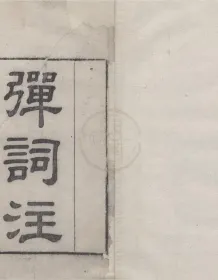 彈詞注